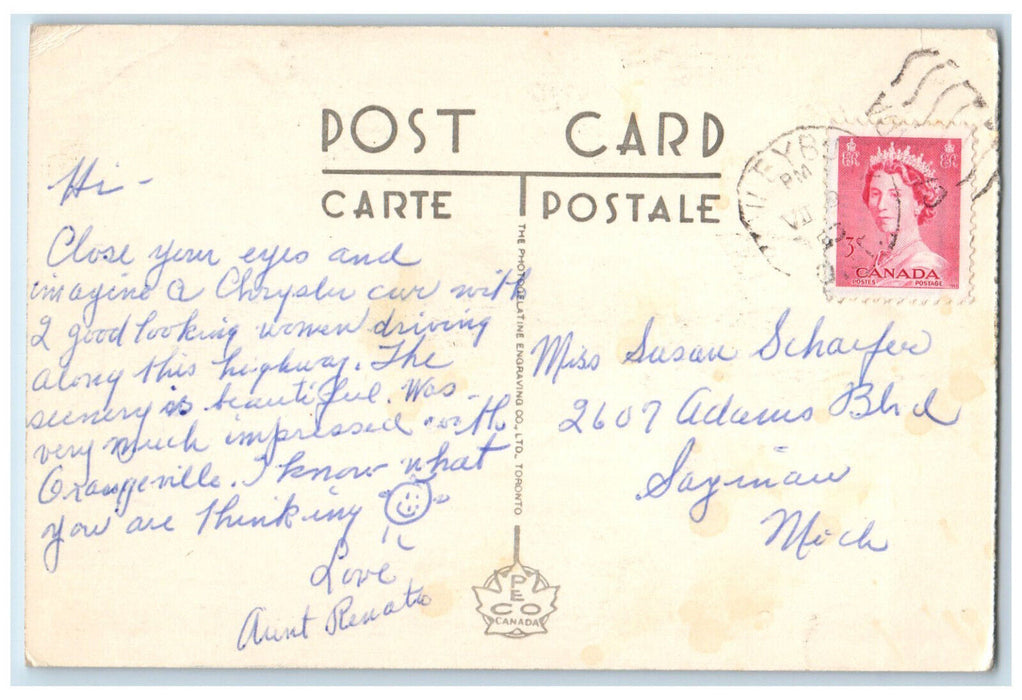 POST CARD
CARTE POSTALE
Hi -
Close your eyes and
imagine a Chrysler car with
2 good looking women driving
along this highway. The
scenery is beautiful. Was
very much impressed with
Orangeville. I know what
you are thinking
Love
Aunt Renata
THE PHOTOGELATINE ENGRAVING CO., LTD., TORONTO
PECO
CANADA
PM
VII
3
CANADA
POSTES POSTAGE
Miss Susan Schaefer
2607 Adams Blvd
Saginaw
Mich